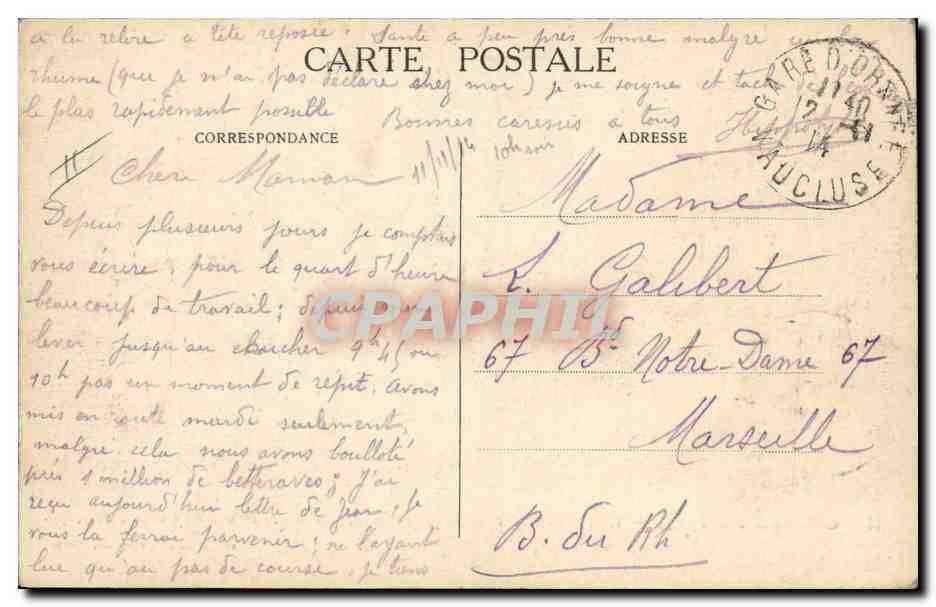 à la relire a tête reposée. Santé a peu près bonne malgré un
CARTE POSTALE
rhume (que je n'ai pas déclaré chez moi) je me soigne et
le plus rapidement possible
Bonnes caresses a tous
CORRESPONDANCE
ADRESSE
GARE D'ORANGE
11 40
12 - 11
14
VAUCLUSE
11
Chere Maman
11/11/14
10h soir
Depuis plusieurs jours je comptais
vous écrire, pour le quart d'heure
beaucoup de travail; depuis mon
lever jusqu'au coucher 9h45 ou
10h pas un moment de répit. Avons
mis en route mardi seulement,
malgré cela nous avons boulloté
près 1 million de betteraves; J'ai
reçu aujourd'hui lettre de Jean; Je
vous la ferai parvenir; ne l'ayant
lue qu'au pas de course, je tiens
Madame
L. Galibert
67 Bd Notre-Dame 67
Marseille
B. du Rh.
CPAPHIL